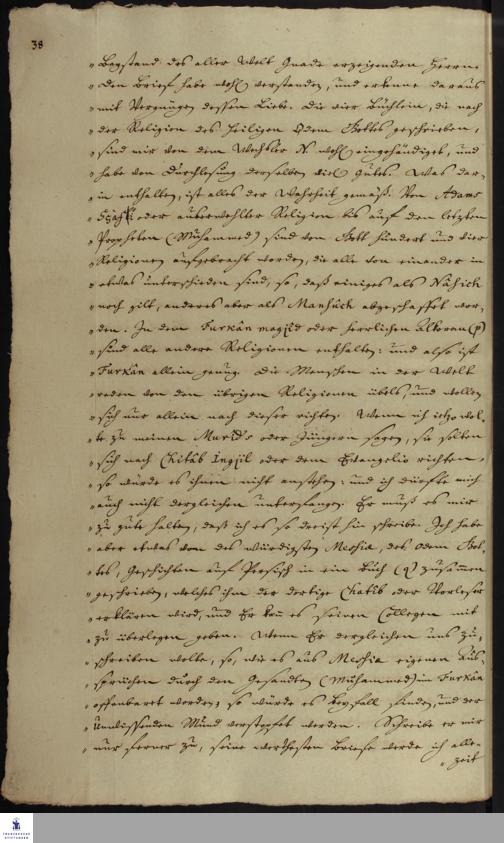 38
" Beystand des aller Welt Gnade erzeigenden Herrn.
" Den Brief habe wohl verstanden, und erkenne daraus
" mit Vergnügen dessen Liebe. Die vier Büchlein, die nach
" der Religion des Heiligen Odem Gottes geschrieben,
" sind mir von dem Wechsler N wohl eingehändiget, und
" habe von Durchlesung derselben viel Gutes. Was dar-
" in enthalten, ist alles der Wahrheit gemäß. Von Adams
" oder auserwehlter Religion bis auf den letzten
" Propheten (Muhammed) sind von Gott hundert und vier
" Religionen aufgebracht worden, die alle von einander in
" etwas unterschieden sind, so, daß einiges als Nâsich
" noch gilt, anderes aber als Manhûck abgeschaffet wor-
" den. In dem Furkân magjid oder herrlichen Alkoran (p)
" sind alle andere Religionen enthalten: und also ist
" Furkân allein genug. Die Menschen in der Welt
" reden von den übrigen Religionen übels, und wollen
" sich nur allein nach dieser richten. Wenn ich itzo wol-
" te zu meinen Murîd's oder Jüngern sagen, sie solten
" sich nach Chitâb Ingjil oder dem Evangelio richten,
" so würde es ihnen nicht anstehen: und ich dürfte mich
" auch nicht dergleichen unterfangen. Er muß es mir
" zu gute halten, daß ich es so dreist hin schreibe. Ich habe
" aber etwas von des würdigsten Meshia, des Odem Got-
" tes, Geschichten auf Persisch in ein Buch (q) zusammen
" geschrieben, welches ihm der dortige Chatib oder Vorleser
" erklären wird, und Er kan es seinen Collegen mit
" zu überlegen geben. Wenn Er dergleichen uns zu-
" schreiben wolte, so, wie es aus Meshia eigenen Aus-
" sprüchen durch den Gesandten (Muhammed) im Furkân
" offenbaret worden; so würde es Beyfall finden, und der
" Unwissenden Mund verstopfet werden. Schreibe er mir
" nur ferner zu, seine werthesten Briefe werde ich alle-
" zeit
FRANCKESCHE
STIFTUNGEN